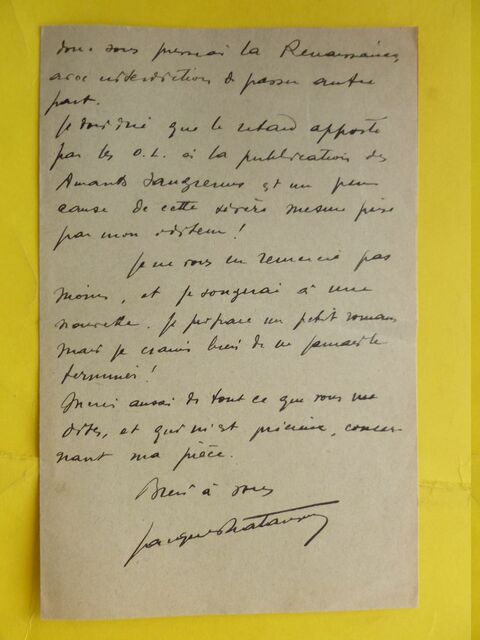 la Renaissance,
avec interdiction de passer autre
part.
Je dois dire que le retard apporté
par les O. L. à la publication des
Amants Saugrenus est un peu
cause de cette sévère mesure prise
par mon éditeur !
Je ne vous en remercie pas
moins, et je songerai à une
nouvelle. Je prépare un petit roman,
mais je crains bien de ne jamais le
terminer !
Merci aussi de tout ce que vous me
dites, et qui m'est précieux, concer-
nant ma pièce.
Bien à vous
Jacques Natanson